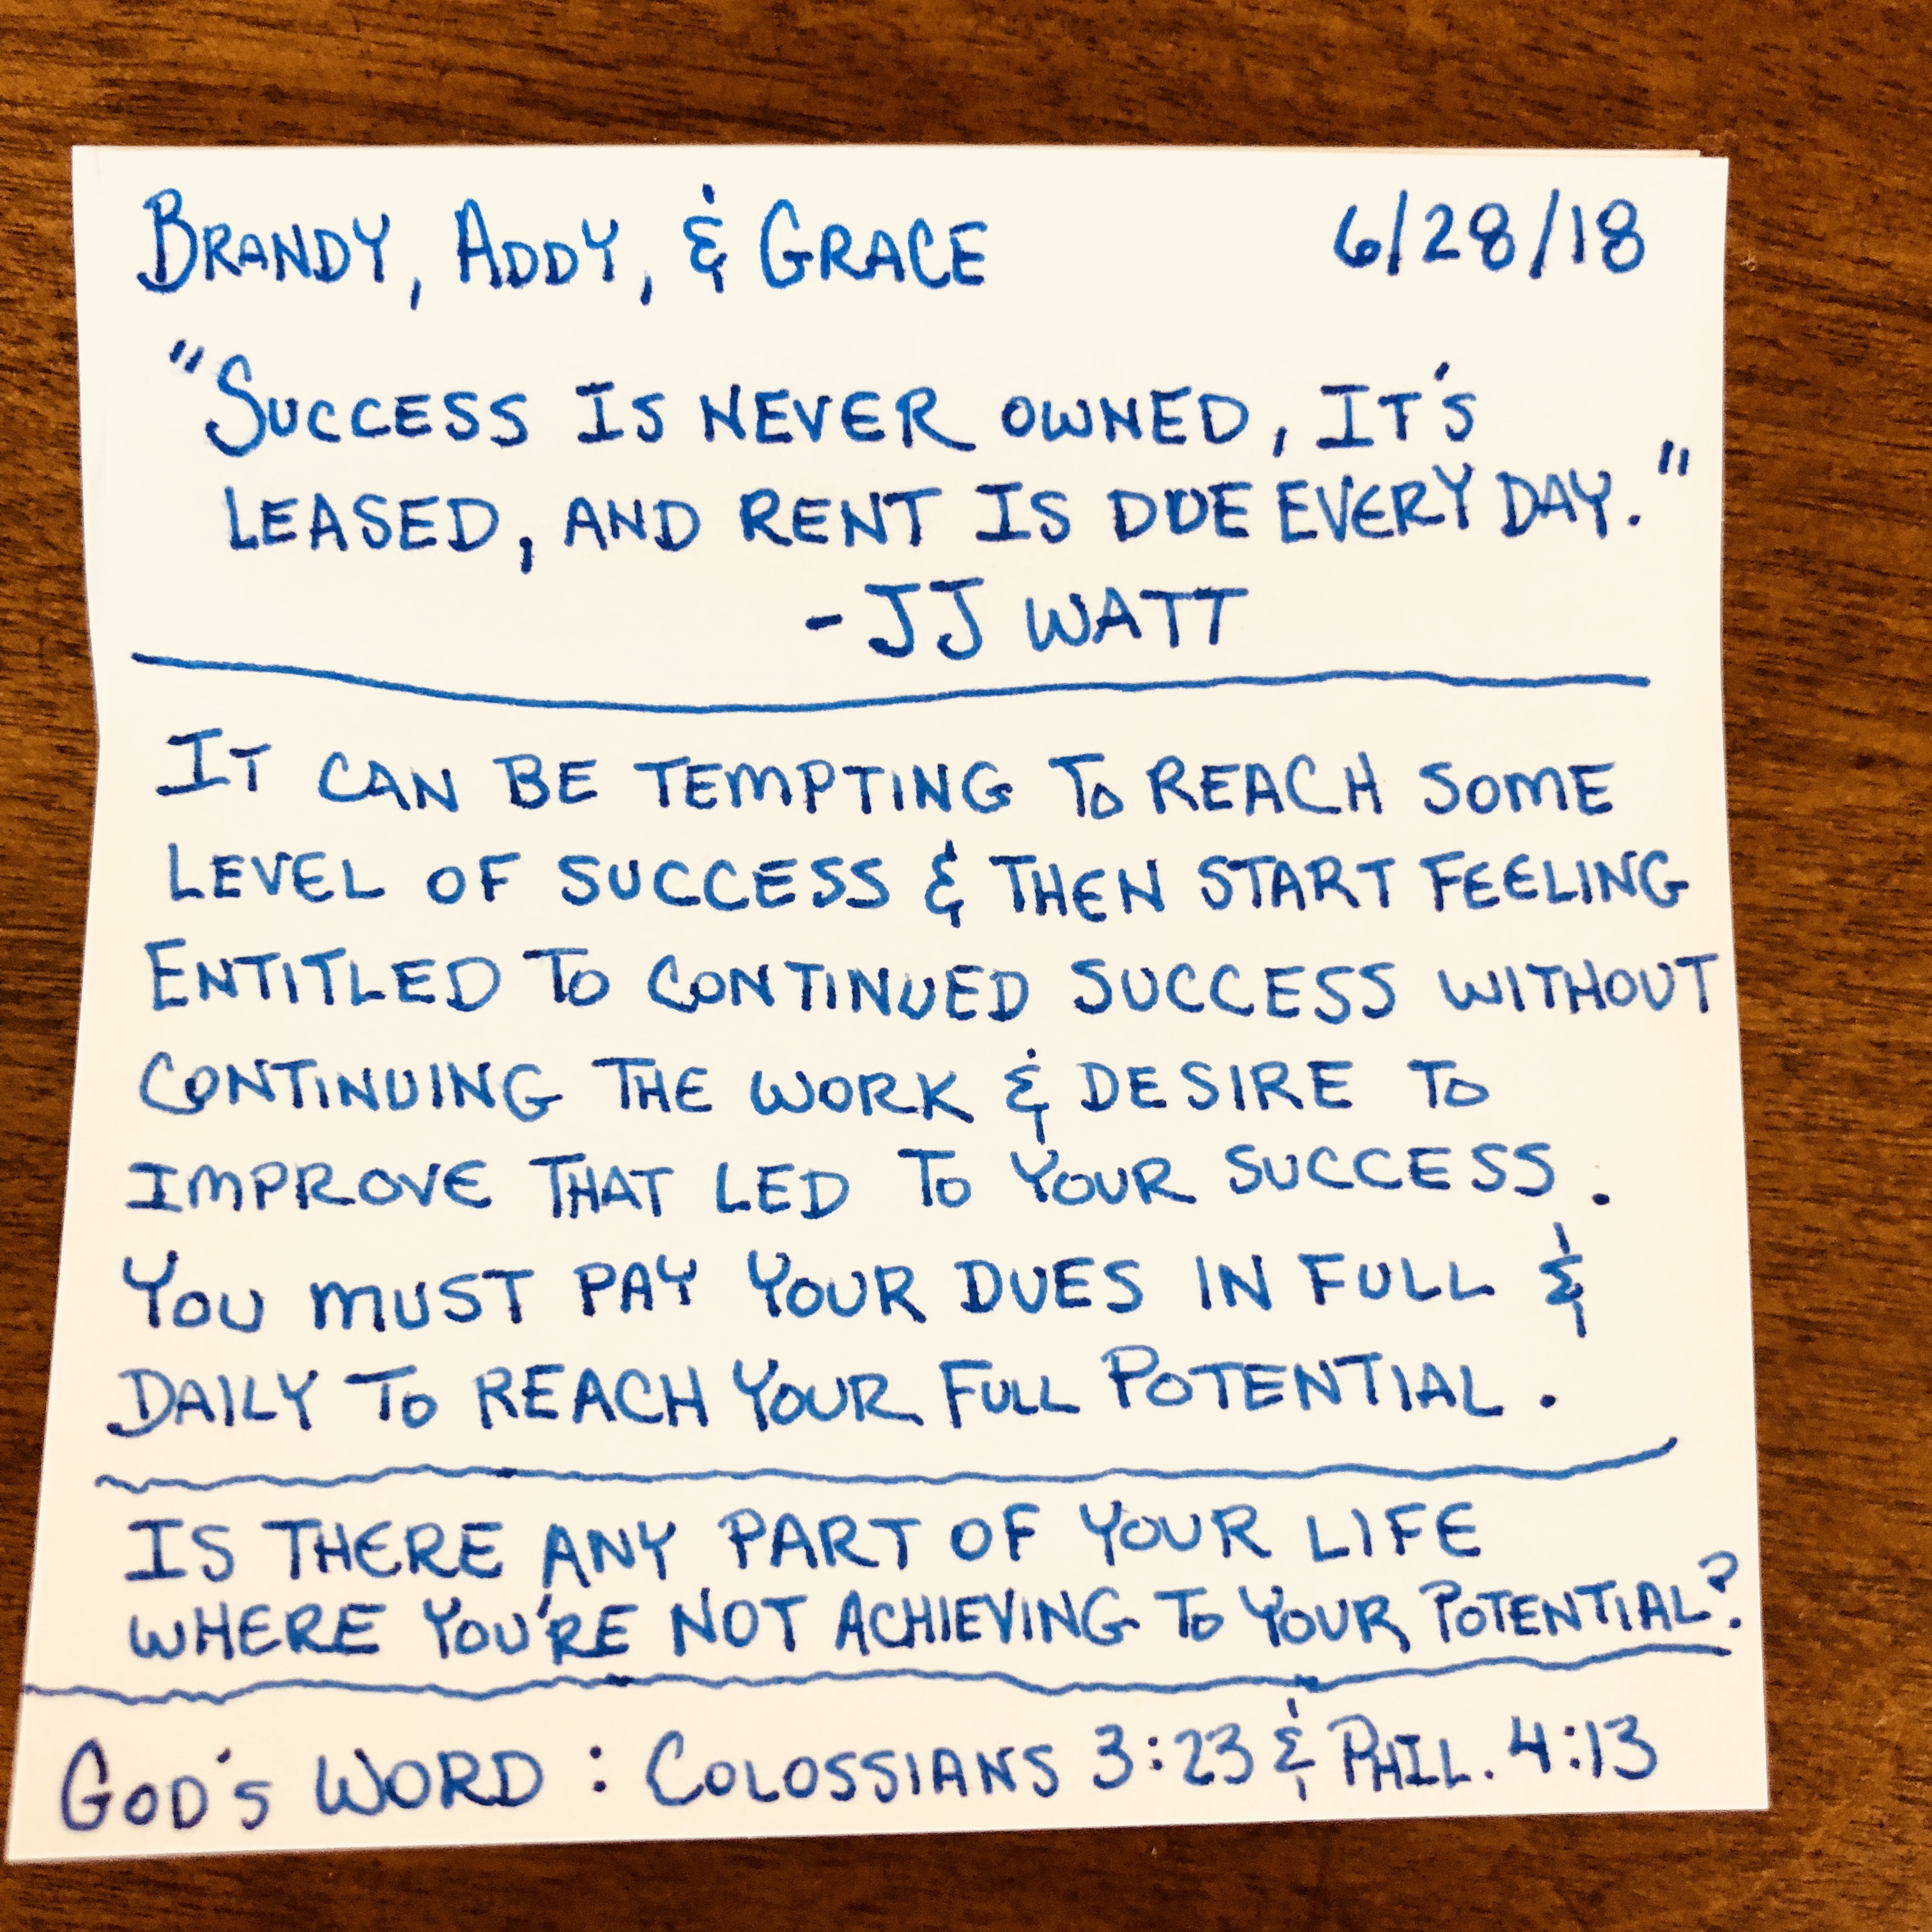 BRANDY, ADDY, & GRACE 6/28/18
"SUCCESS IS NEVER OWNED, IT'S
LEASED, AND RENT IS DUE EVERY DAY."
-JJ WATT
IT CAN BE TEMPTING TO REACH SOME
LEVEL OF SUCCESS & THEN START FEELING
ENTITLED TO CONTINUED SUCCESS WITHOUT
CONTINUING THE WORK & DESIRE TO
IMPROVE THAT LED TO YOUR SUCCESS.
YOU MUST PAY YOUR DUES IN FULL &
DAILY TO REACH YOUR FULL POTENTIAL.
IS THERE ANY PART OF YOUR LIFE
WHERE YOU'RE NOT ACHIEVING TO YOUR POTENTIAL?
GOD'S WORD: COLOSSIANS 3:23 & PHIL. 4:13